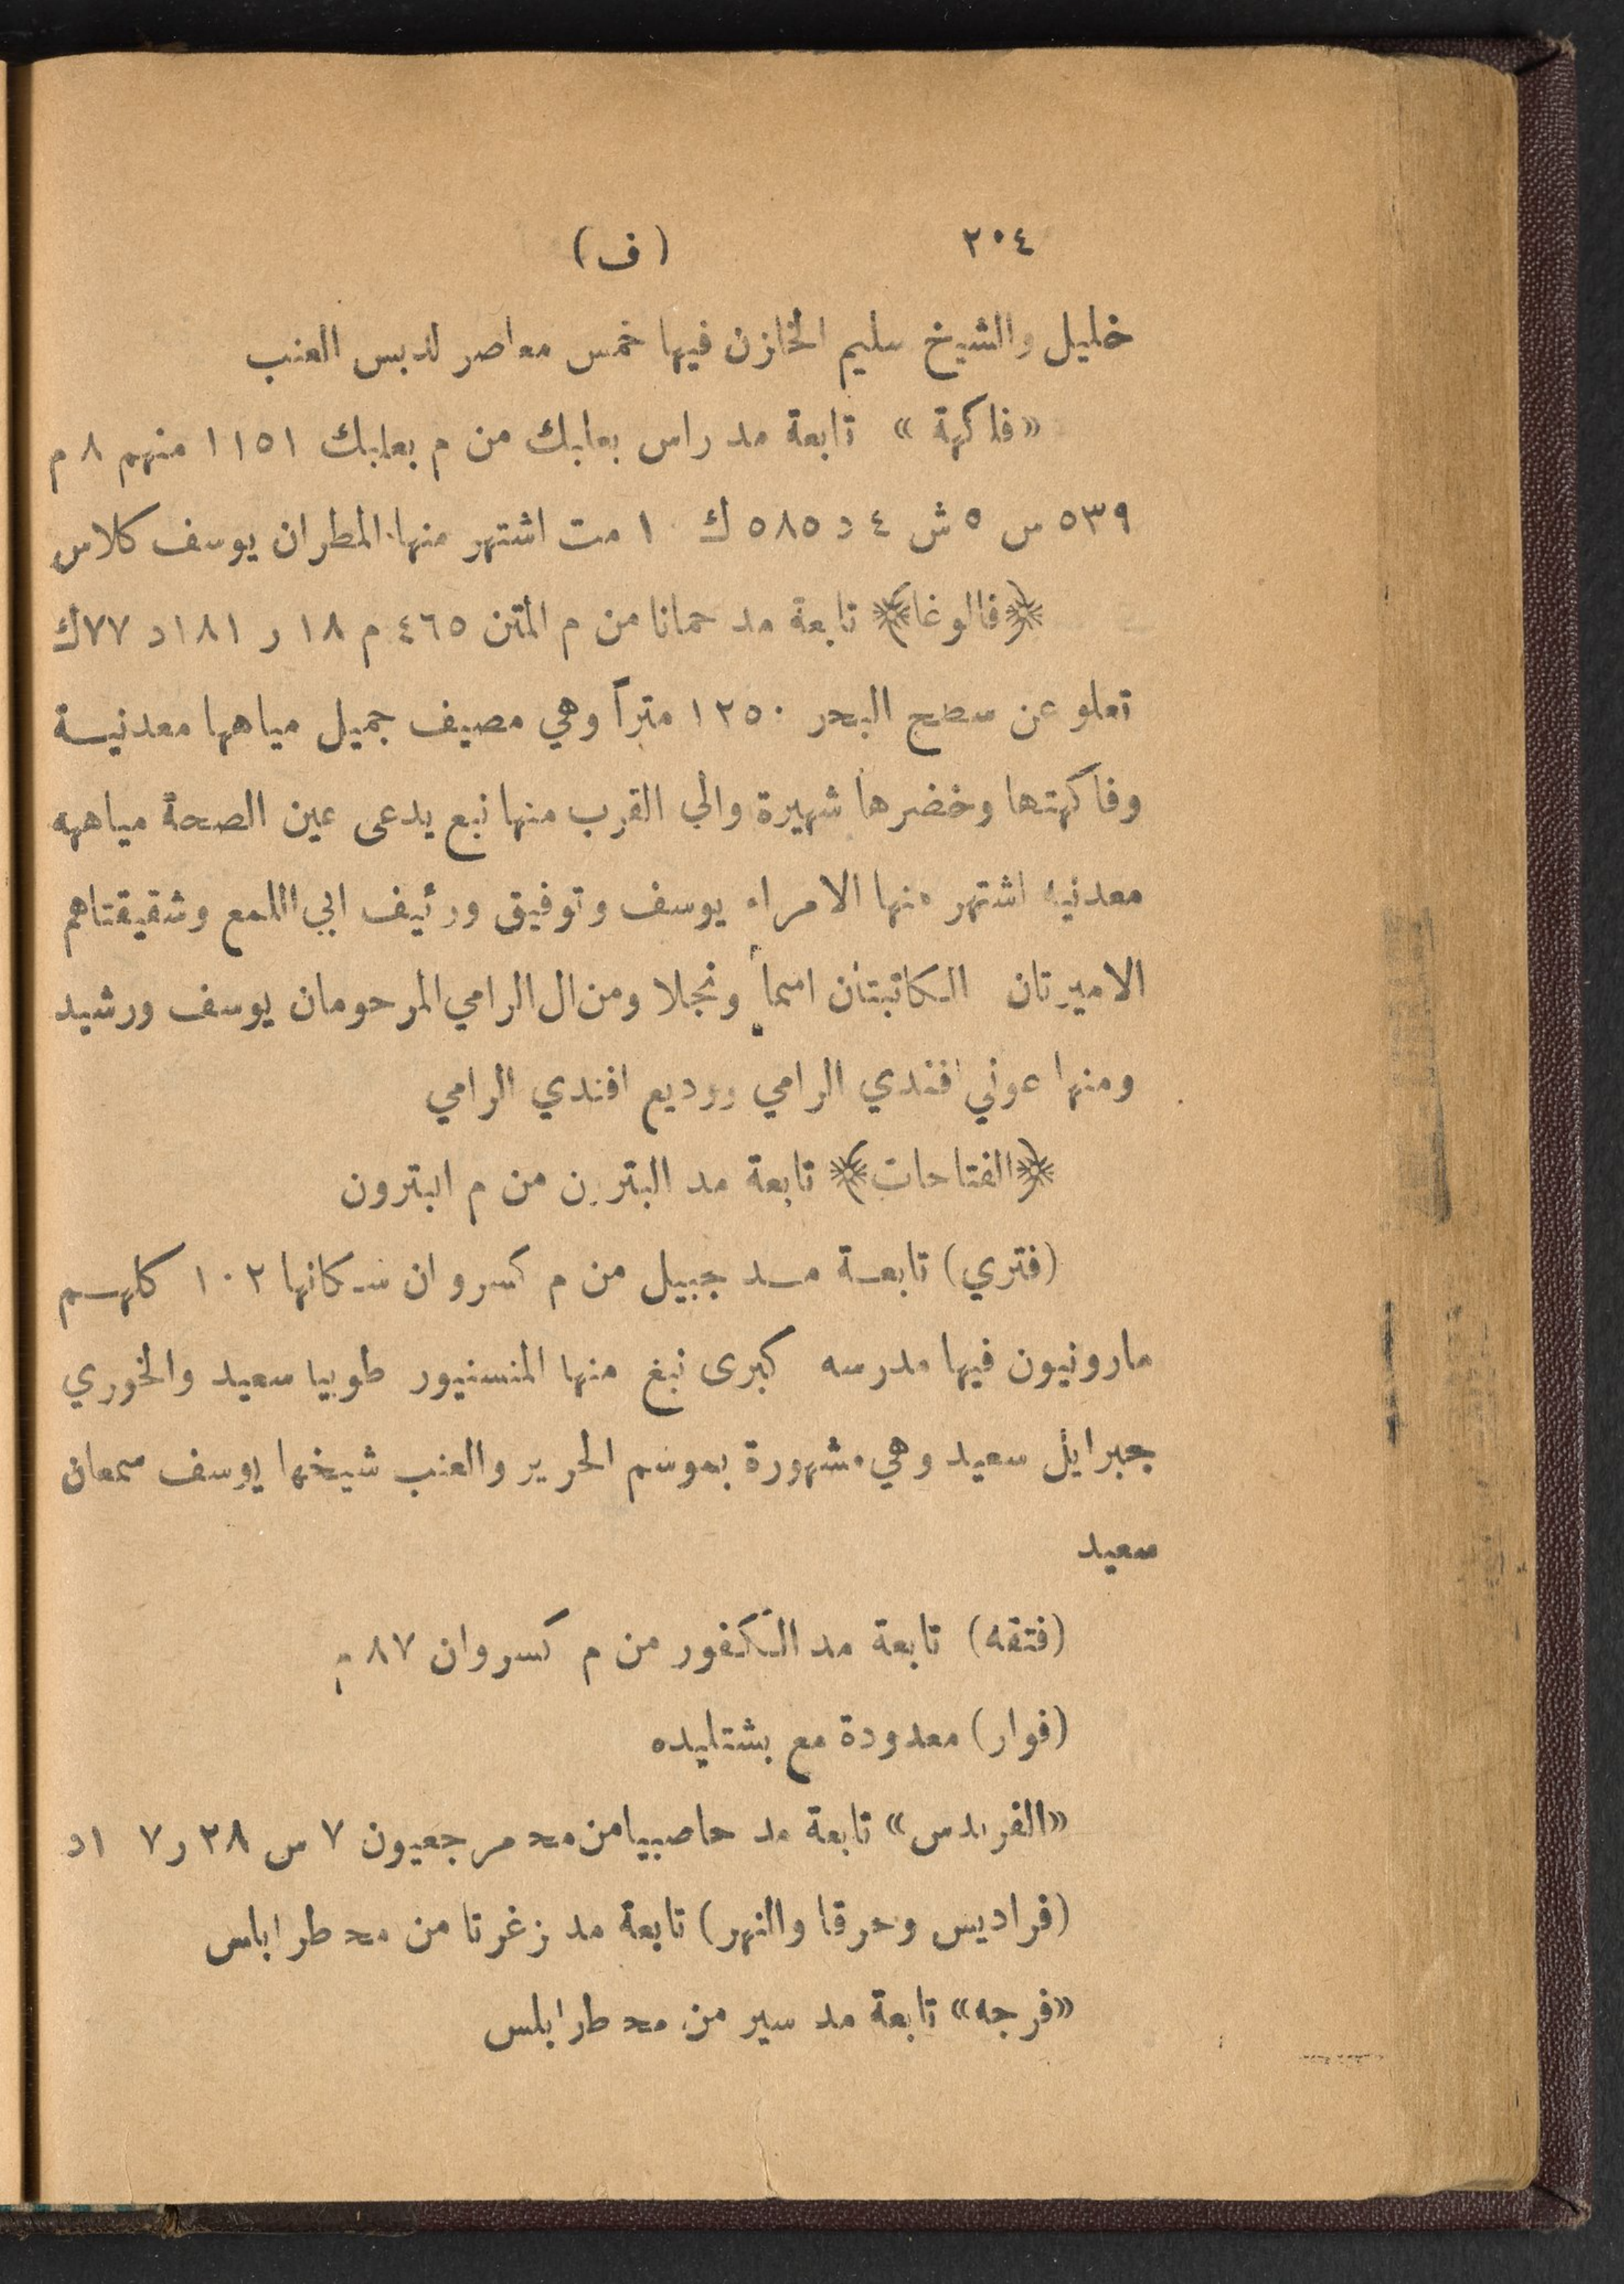 ٢٠٤ (ف)
خليل والشيخ سليم الخازن فيها خمس معاصر لدبس العنب
«فاكهة» تابعة مد راس بعلبك من م بعلبك ١١٥١ منهم ٨ م
٥٣٩ س ٥ ش ٤ د ٥٨٥ ك ١ مت اشتهر منها المطران يوسف كلاس
﴿فالوغا﴾ تابعة مد حمانا من م المتن ٤٦٥ م ١٨ ر ١٨١ د ٧٧ ك
تعلو عن سطح البحر ١٢٥٠ متراً وهي مصيف جميل مياهها معدنية
وفاكهتها وخضرها شهيرة والي القرب منها نبع يدعى عين الصحة مياهه
معدنيه اشتهر منها الامراء يوسف وتوفيق ورئيف ابي اللمع وشقيقتاهم
الاميرتان الكاتبتان اسما ونجلا ومن ال الرامي المرحومان يوسف ورشيد
ومنها عوني افندي الرامي ووديع افندي الرامي
﴿الفتاحات﴾ تابعة مد البترون من م البترون
(فتري) تابعة مد جبيل من م كسروان سكانها ١٠٢ كلهم
مارونيون فيها مدرسه كبرى نبغ منها المنسنيور طوبيا سعيد والخوري
جبرايل سعيد وهي مشهورة بموسم الحرير والعنب شيخها يوسف سمعان
سعيد
(فتقه) تابعة مد الكفور من م كسروان ٨٧ م
(فوار) معدودة مع بشتليده
«الفريدس» تابعة مد حاصبيا من مح مرجعيون ٧ س ٢٨ ر ٧ ١ د
(فراديس وحرقا والنهر) تابعة مد زغرتا من مح طرابلس
«فرجه» تابعة مد سير من مح طرابلس